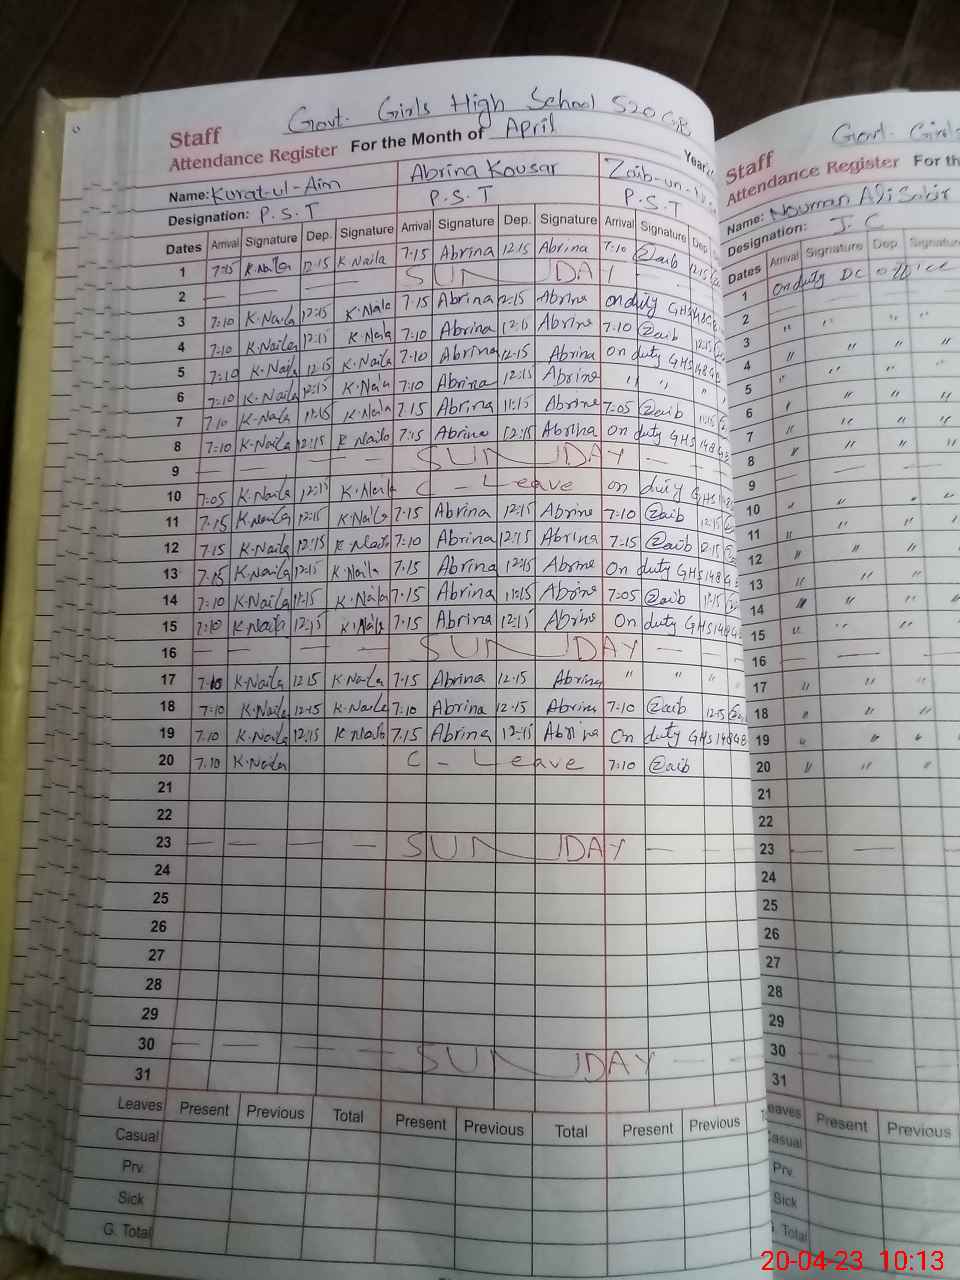 Govt. Girls High School 520 GB
Staff
Attendance Register For the Month of April Year:
Name: Kurat-ul-Ain Abrina Kousar Zaib-un-
Designation: P.S.T P.S.T P.S.T
Dates Arrival Signature Dep. Signature Arrival Signature Dep. Signature Arrival Signature Dep.
1 7:15 K.Naila 12:15 K.Naila 7:15 Abrina 12:15 Abrina 7:10 Zaib 12:15
2 — — — — SUNDAY — —
3 7:10 K.Naila 12:15 K.Naila 7:15 Abrina 12:15 Abrina on duty GHS148GB
4 7:10 K.Naila 12:15 K.Naila 7:10 Abrina 12:15 Abrina 7:10 Zaib 12:15
5 7:10 K.Naila 12:15 K.Naila 7:10 Abrina 12:15 Abrina on duty GHS148GB
6 7:10 K.Naila 12:15 K.Naila 7:10 Abrina 12:15 Abrina " " " "
7 7:10 K.Naila 11:15 K.Naila 7:15 Abrina 11:15 Abrina 7:05 Zaib 11:15
8 7:10 K.Naila 12:15 K.Naila 7:15 Abrina 12:15 Abrina on duty GHS148GB
9 — — — — SUNDAY — — —
10 7:05 K.Naila 12:15 K.Naila C - Leave on duty GHS148
11 7:15 K.Naila 12:15 K.Naila 7:15 Abrina 12:15 Abrina 7:10 Zaib 12:15
12 7:15 K.Naila 12:15 K.Naila 7:10 Abrina 12:15 Abrina 7:15 Zaib 12:15
13 7:15 K.Naila 12:15 K.Naila 7:15 Abrina 12:15 Abrina On duty GHS148G
14 7:10 K.Naila 11:15 K.Naila 7:15 Abrina 11:15 Abrina 7:05 Zaib 11:15
15 7:10 K.Naila 12:15 K.Naila 7:15 Abrina 12:15 Abrina On duty GHS148G
16 — — — — SUNDAY — — —
17 7:10 K.Naila 12:15 K.Naila 7:15 Abrina 12:15 Abrina " " " "
18 7:10 K.Naila 12:15 K.Naila 7:10 Abrina 12:15 Abrina 7:10 Zaib 12:15
19 7:10 K.Naila 12:15 K.Naila 7:15 Abrina 12:15 Abrina On duty GHS148GB
20 7:10 K.Naila C - Leave 7:10 Zaib
21
22
23 — — — — SUNDAY — — —
24
25
26
27
28
29
30 — — — — SUNDAY — — —
31
Leaves Present Previous Total Present Previous Total Present Previous
Casual
Prv.
Sick
G. Total
Govt. Girls
Staff
Attendance Register For th
Name: Nouman Ali Sabir
Designation: J. C
Dates Arrival Signature Dep. Signature
1 On duty DC office
2
3 " " " "
4 " " " "
5 " " " "
6 " " " "
7 " " " "
8 " " " "
9 — — — —
10 " " " "
11 " " " "
12 " " " "
13 " " " "
14 " " " "
15 " " " "
16 — — — —
17 " " " "
18 " " " "
19 " " " "
20 " " " "
21
22
23 — — — —
24
25
26
27
28
29
30 — —
31
Leaves Present Previous
Casual
Prv.
Sick
G. Total
20-04-23 10:13